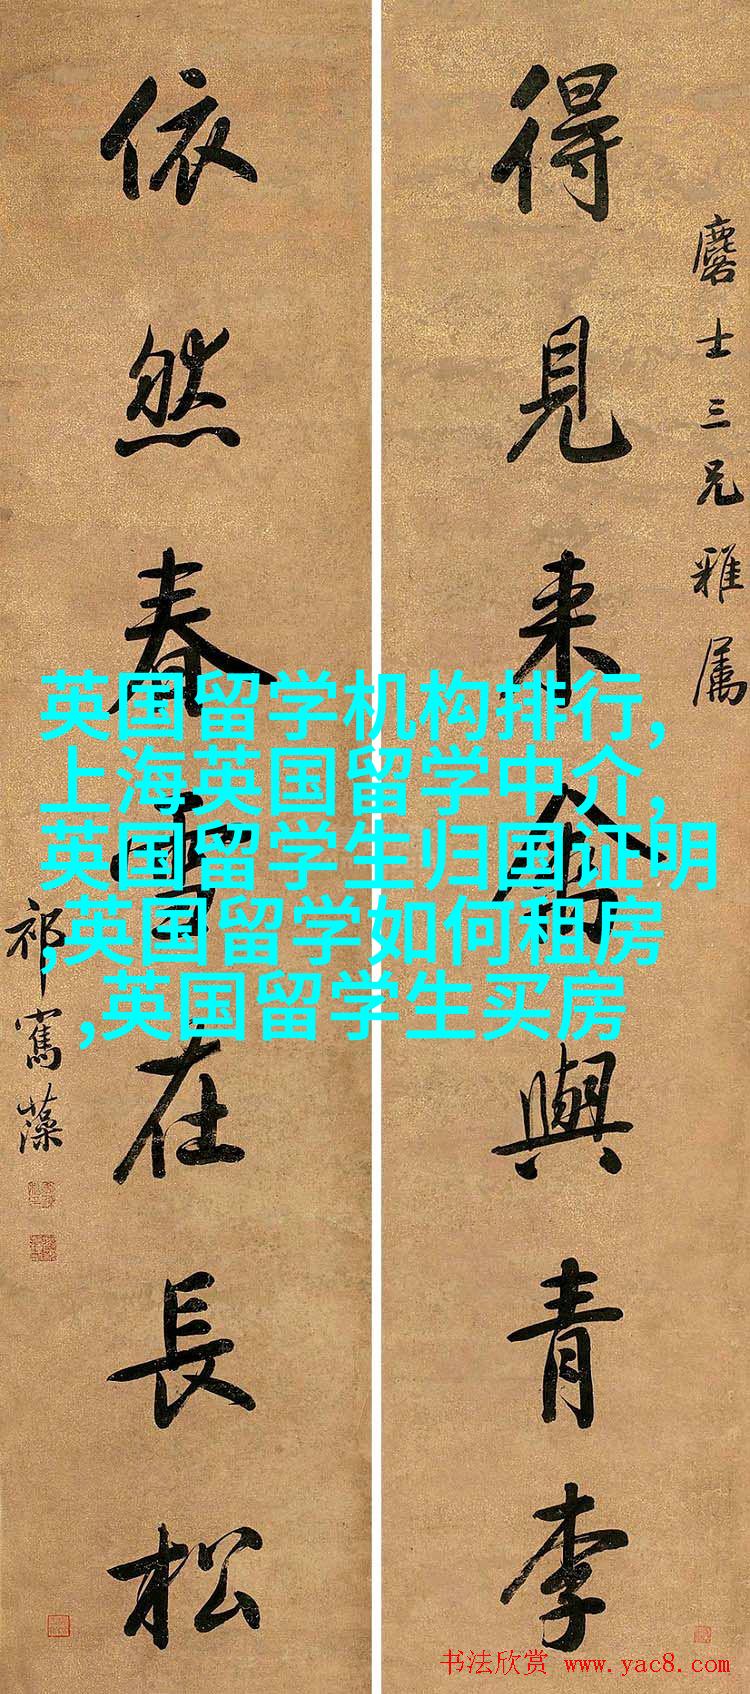 麐士三兄雅属
得見来禽與青李
依然春雪在長松
祁寯藻
英国留学机构排行,
上海英国留学中介,
英国留学生归国证明
,英国留学如何租房
,英国留学生买房
书法欣赏 www.yac8.com